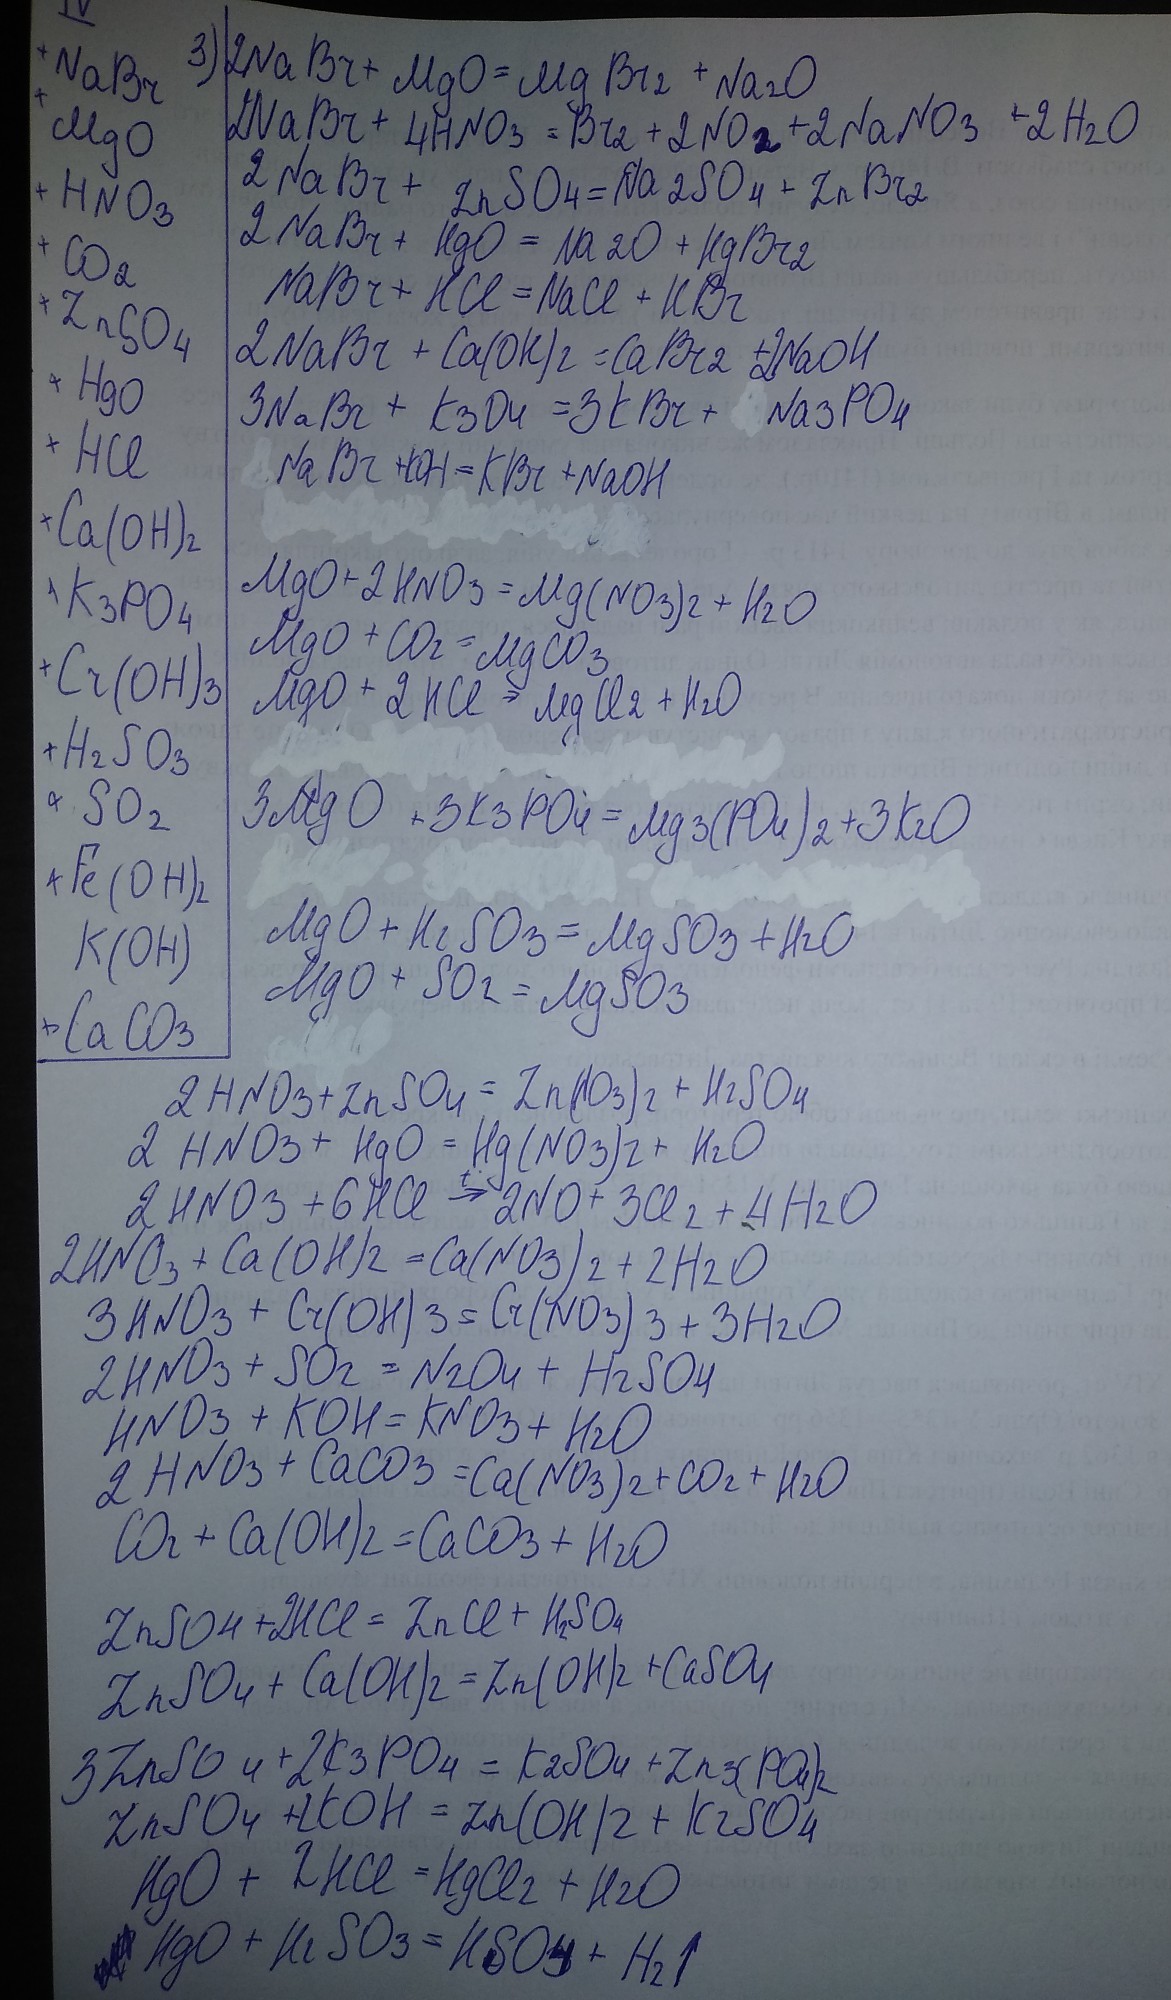 IV
+NaBr
+MgO
+HNO3
+CO2
+ZnSO4
+HgO
+HCl
+Ca(OH)2
+K3PO4
+Cr(OH)3
+H2SO3
+SO2
+Fe(OH)2
K(OH)
+CaCO3
3) 2NaBr + MgO = MgBr2 + Na2O
2NaBr + 4HNO3 = Br2 + 2NO2 + 2NaNO3 + 2H2O
2NaBr + ZnSO4 = Na2SO4 + ZnBr2
2NaBr + HgO = Na2O + HgBr2
NaBr + HCl = NaCl + HBr
2NaBr + Ca(OH)2 = CaBr2 + 2NaOH
3NaBr + K3O4 = 3KBr + Na3PO4
NaBr + OH = KBr + NaOH
MgO + 2HNO3 = Mg(NO3)2 + H2O
MgO + CO2 = MgCO3
MgO + 2HCl → MgCl2 + H2O
3MgO + 3K3PO4 = Mg3(PO4)2 + 3K2O
MgO + H2SO3 = MgSO3 + H2O
MgO + SO2 = MgSO3
2HNO3 + ZnSO4 = Zn(NO3)2 + H2SO4
2HNO3 + HgO = Hg(NO3)2 + H2O
2HNO3 + 6HCl t→ 2NO + 3Cl2 + 4H2O
2HNO3 + Ca(OH)2 = Ca(NO3)2 + 2H2O
3HNO3 + Cr(OH)3 = Cr(NO3)3 + 3H2O
2HNO3 + SO2 = N2O4 + H2SO4
HNO3 + KOH = KNO3 + H2O
2HNO3 + CaCO3 = Ca(NO3)2 + CO2 + H2O
CO2 + Ca(OH)2 = CaCO3 + H2O
ZnSO4 + 2HCl = ZnCl + H2SO4
ZnSO4 + Ca(OH)2 = Zn(OH)2 + CaSO4
3ZnSO4 + 2K3PO4 = K2SO4 + Zn3(PO4)2
ZnSO4 + 2KOH = Zn(OH)2 + K2SO4
HgO + 2HCl = HgCl2 + H2O
HgO + H2SO3 = HSO4 + H2↑